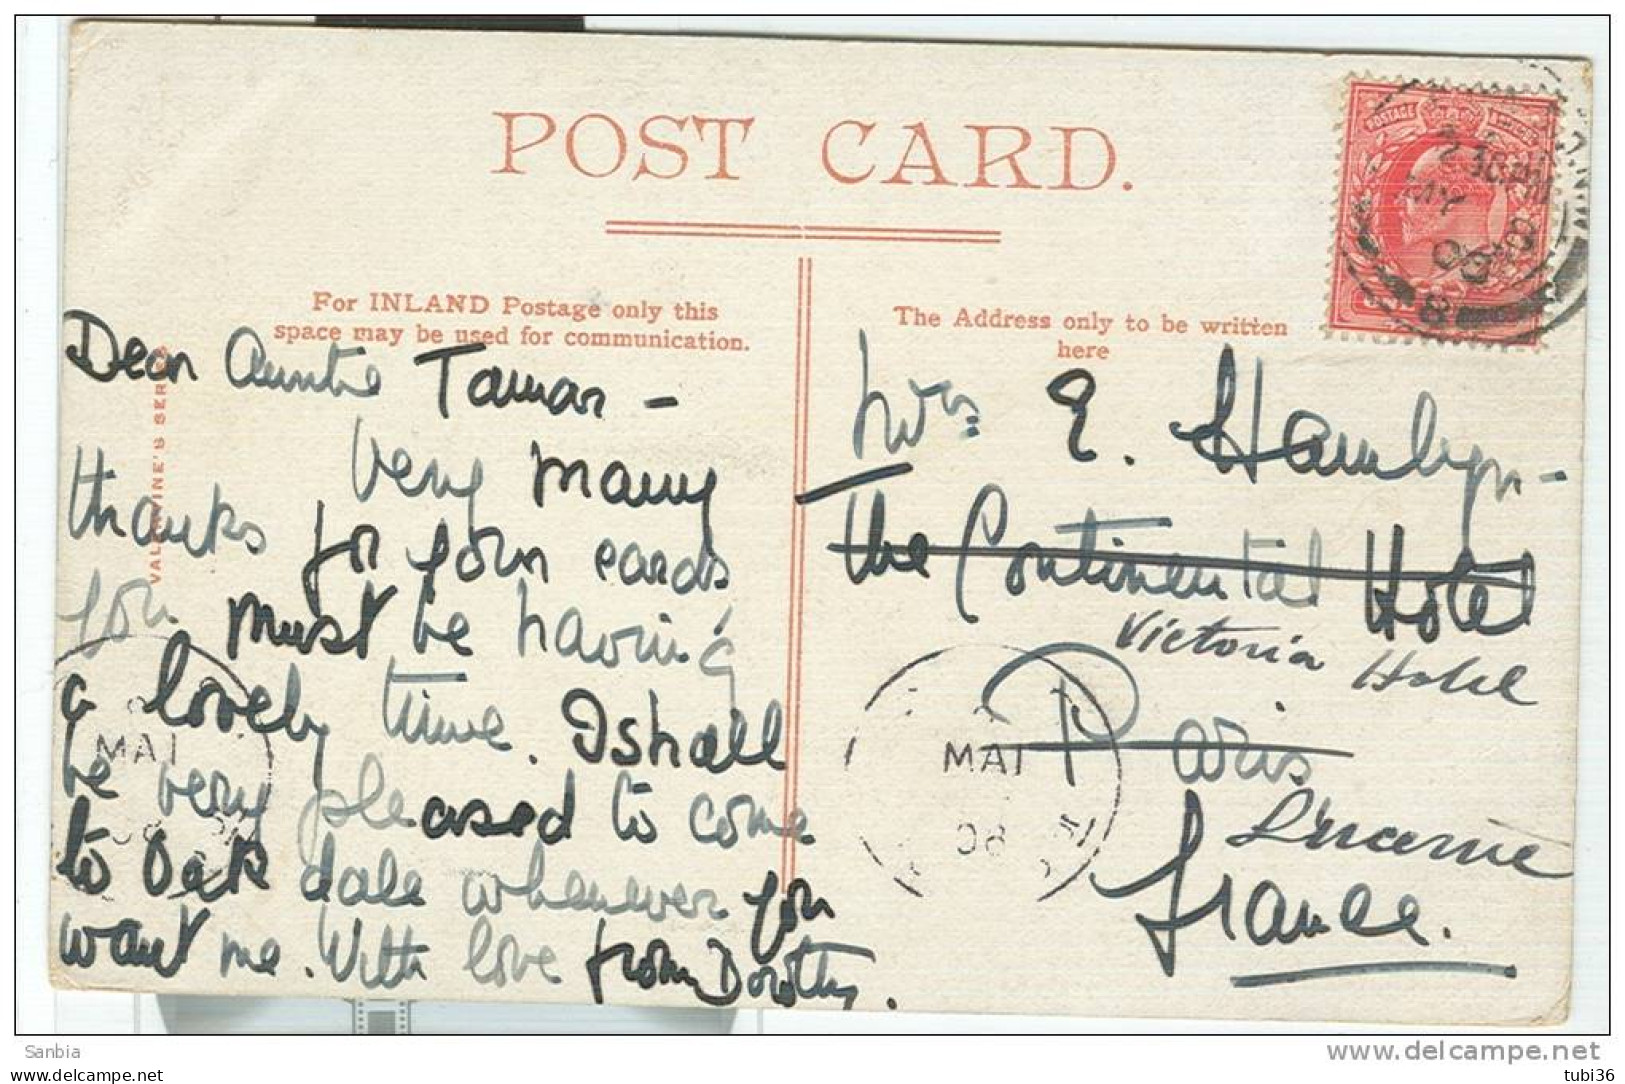 POST CARD.
For INLAND Postage only this
space may be used for communication.
The Address only to be written
here
VALENTINE'S SERIES
Dear Auntie Tamar -
Very many
thanks for your cards
you must be having
a lovely time. I shall
be very pleased to come
to Oak dale whenever you
want me. With love from Dorothy.
Mrs E. Hamlyn -
The Continental Hotel
Victoria Hotel
Paris
Lucerne
France.
POSTAGE
MY
08
MAI
08
MAI
08
Sanbia
www.delcampe.net
tubi36